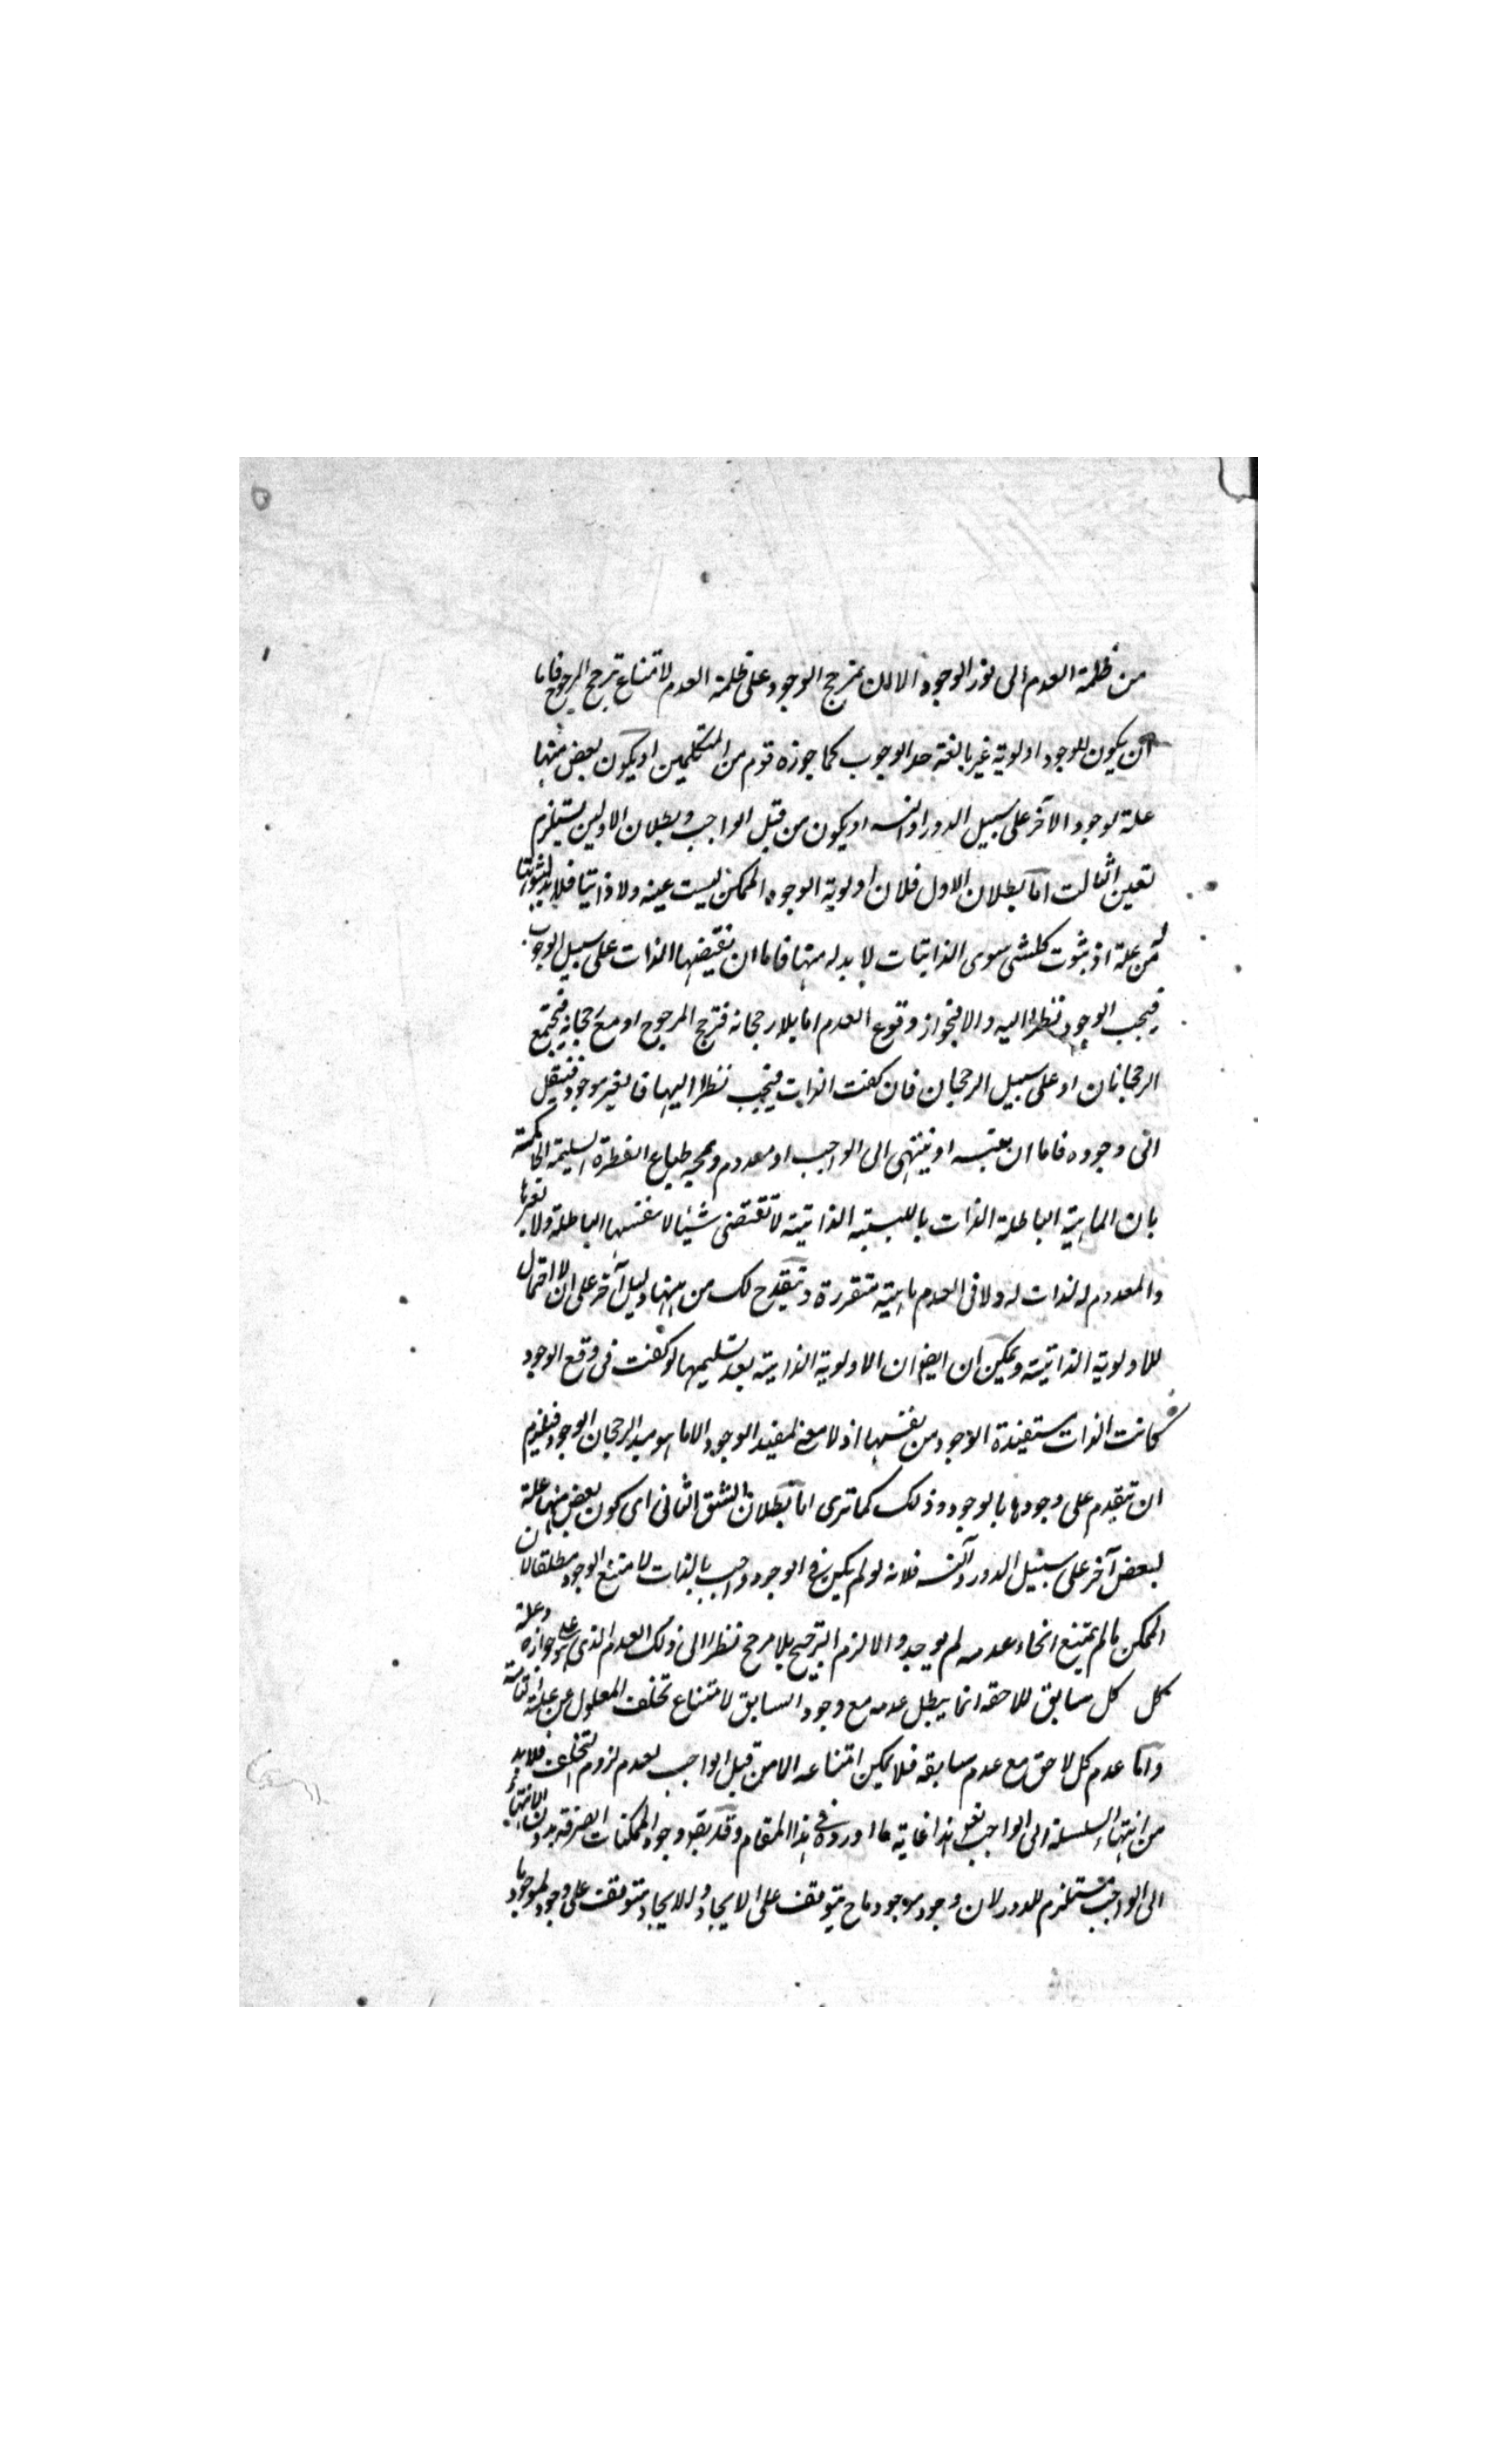 من ظلمة العدم الى نور الوجود الا لان يترجح الوجود على ظلمة العدم لامتناع ترجح المرجوح فاما
ان يكون للوجود اولوية غير بالغة حد الوجوب كما جوزه قوم من المتكلمين او يكون بعض منها
علة لوجود الآخر على سبيل الدور او التسـ او يكون من قبل الواجب وبطلان الاولين يستلزم
تعين الثالث اما بطلان الاول فلان اولوية الوجود الممكن ليست عينه ولا ذاتيا فلابد لثبوتها
من علة اذ ثبوت كلشى سوى الذاتيات لا بد له منها فاما ان تقيضها الذات على سبيل الوجوب
فيجب الوجود نظرا اليه والا فجواز وقوع العدم اما بلا رجحانه فترجح المرجوح او مع رجحانه فيجتمع
الرجحانان او على سبيل الرجحان فان كفت الذات فيجب نظرا اليها فالغير موجود فننقل
الى وجوده فاما ان يتسـ او ينتهى الى الواجب او معدوم ويمجه طباع الفطرة السليمة الحاكمة
بان الماهية الباطلة الذات بالليسية الذاتية لا تقتضى شيئا لا نفسها الباطلة ولا غيرها
والمعدوم لا ذات له ولا فى العدم ماهية متقررة وينقدح لك من ههنا دليل آخر على ان لا احتمال
للاولوية الذاتية ويمكن ان ايضا ان الاولوية الذاتية بعد تسليمها لو كفت فى وقع الوجود
كانت الذات مستفيدة الوجود من نفسها اذ لا معنى لمفيد الوجود الا ما هو مبد الرجحان الوجود فيلزم
ان تتقدم على وجودها بالوجود وذلك كما ترى اما بطلان الشق الثانى اى كون بعض منها علة
لبعض آخر على سبيل الدور والتسـ فلانه لو لم يكن فى الوجود واجب بالذات لامتنع الوجود مطلقا لان
الممكن ما لم يمتنع انحاء عدمه لم يوجد والا لزم الترجيح بلا مرجح نظرا الى ذلك العدم الذى هو على جوازه وعلة
كل كل سابق للاحقه انما يبطل عدمه مع وجود السابق لامتناع تخلف المعلول عن علته التامة
واما عدم كل لاحق مع عدم سابقه فلا يمكن امتناعه الا من قبل الواجب لعدم لزوم التخلف فلابد
من انتهاء السلسلة الى الواجب نعم هذا غاية ما اوردوه فى هذا المقام وقد يقـ وجود الممكنات الصرفة بدون الانتهاء
الى الواجب مستلزم للدور لان وجود موجود ما ح يتوقف على الايجاد والايجاد متوقف على وجود لموجود ما